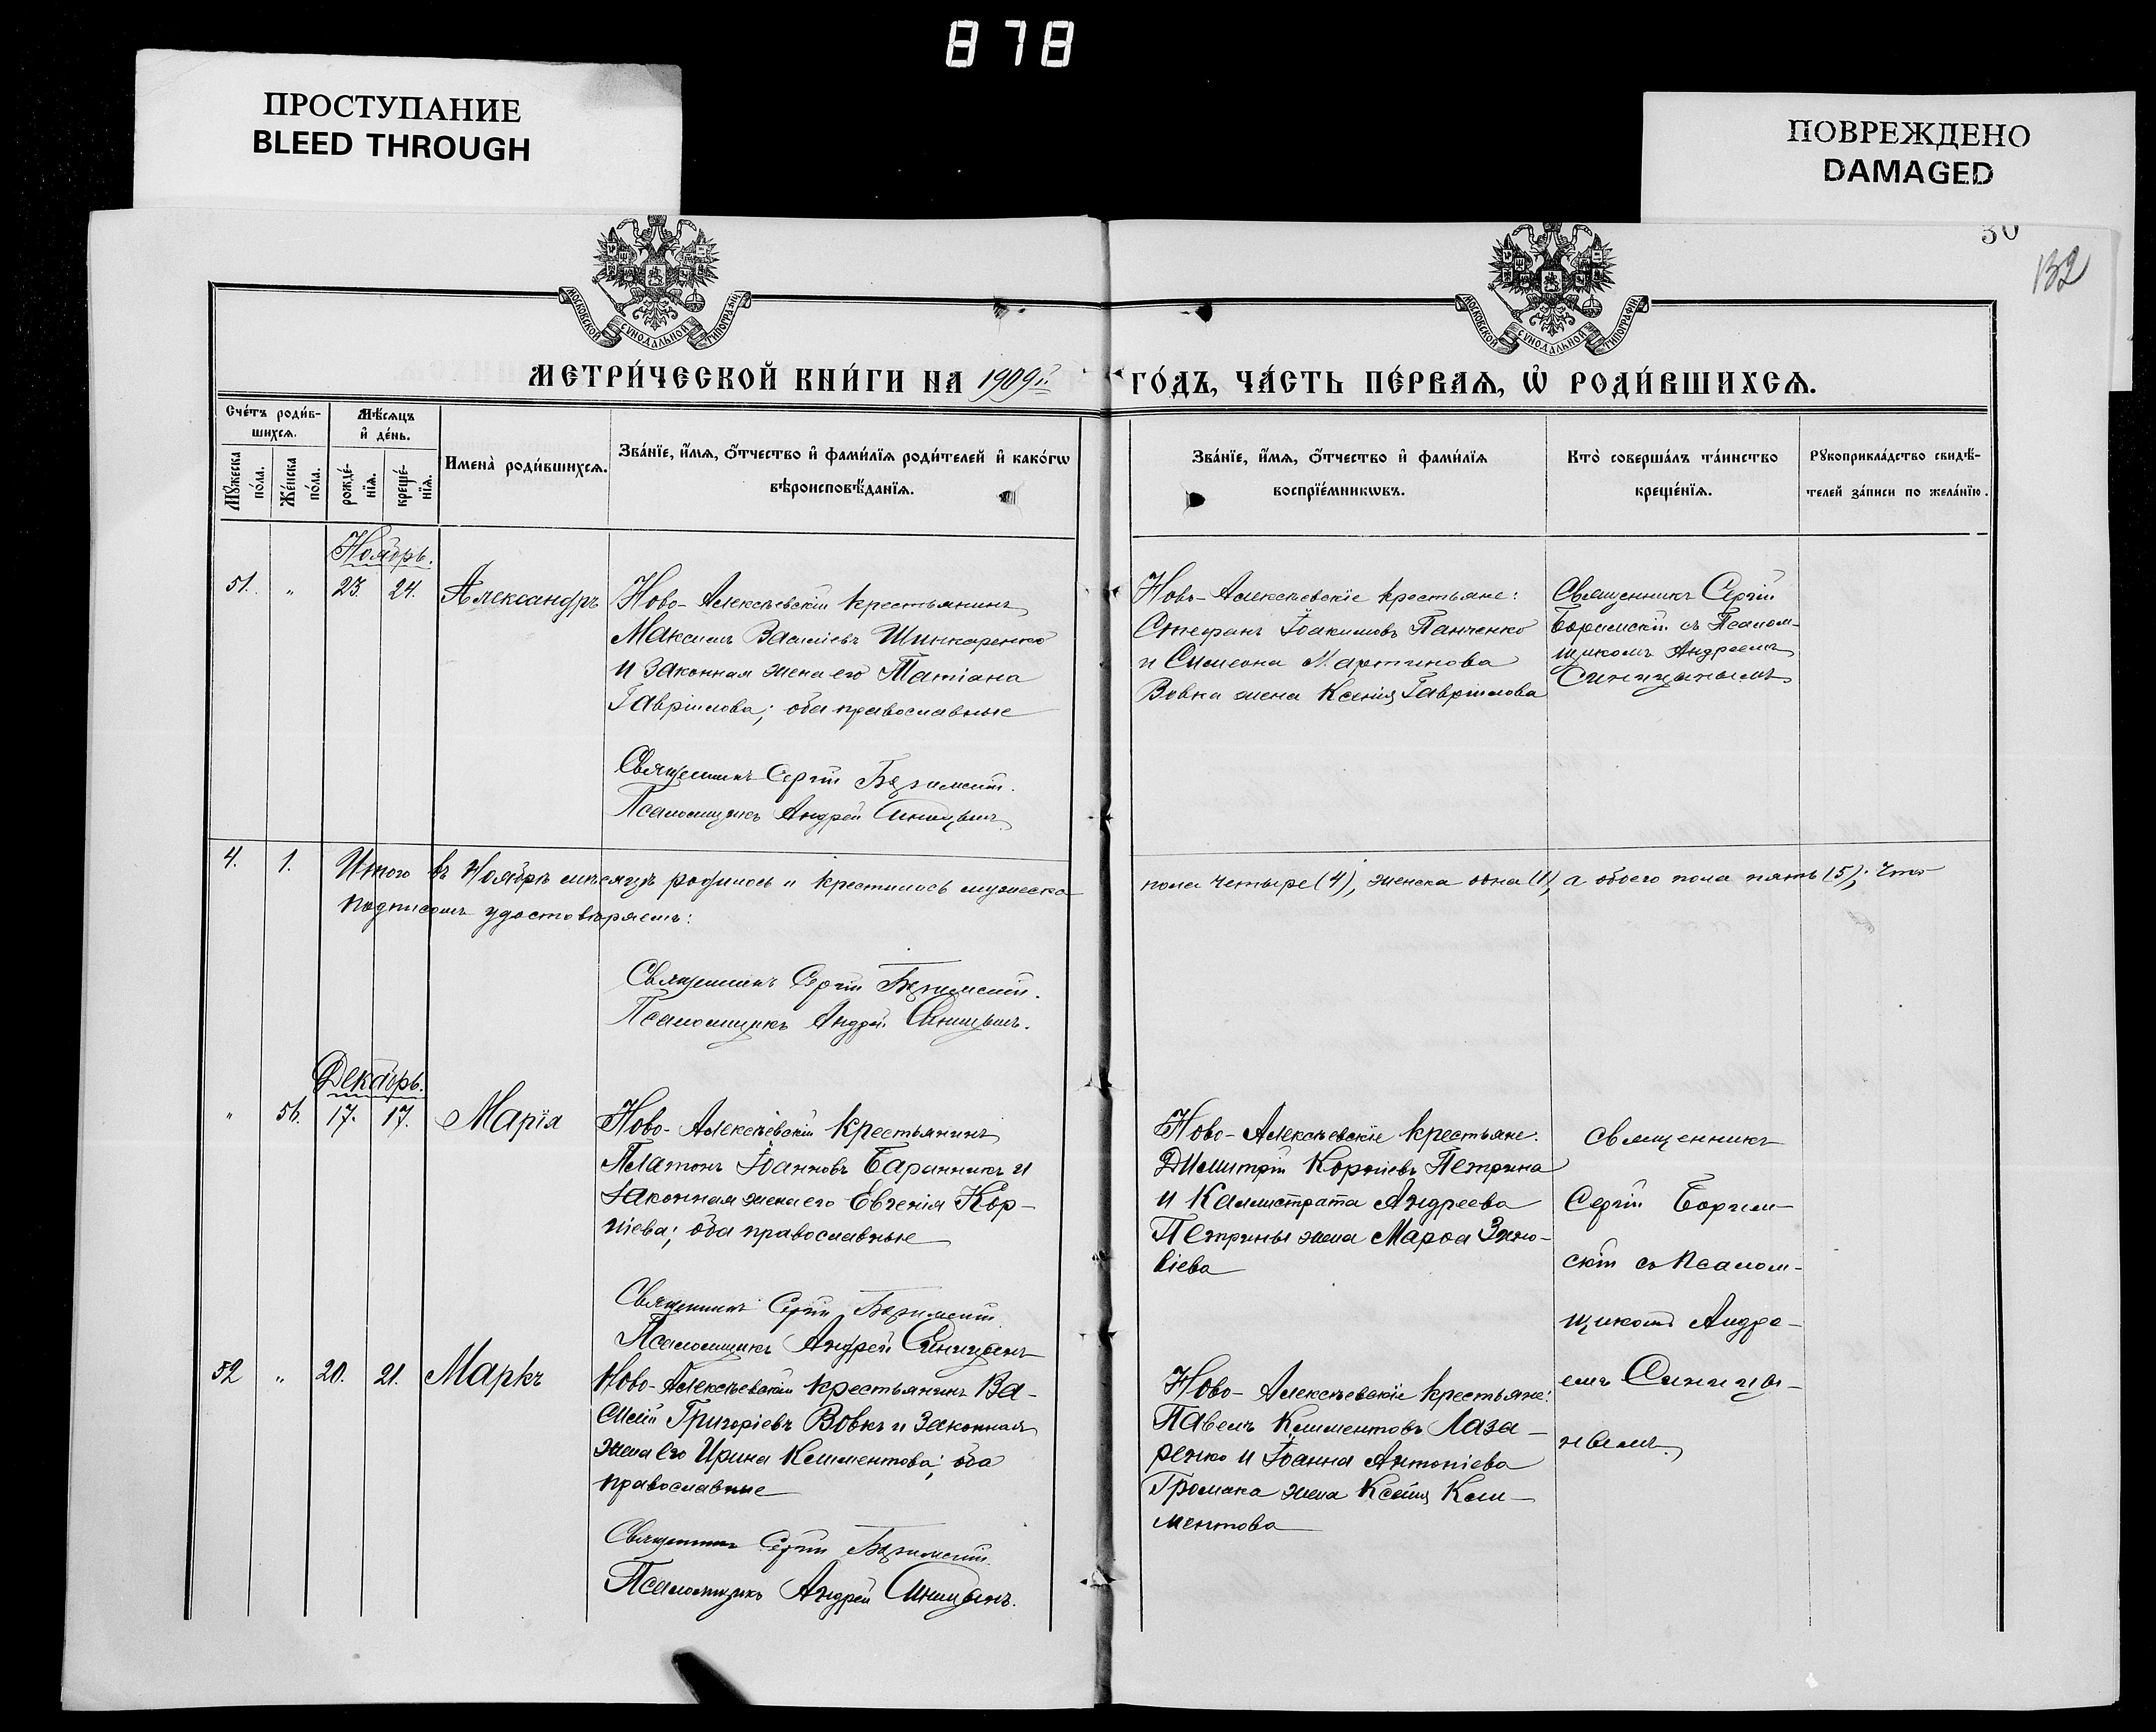 878
ПРОСТУПАНИЕ
BLEED THROUGH
ПОВРЕЖДЕНО
DAMAGED
30
132
МОСКОВСКОЙ СѴНОДАЛЬНОЙ ТИПОГРАФІИ
МОСКОВСКОЙ СѴНОДАЛЬНОЙ ТИПОГРАФІИ
МЕТРИ́ЧЕСКОЙ КНИ́ГИ НА 1909й
ГО́ДЪ, ЧА́СТЬ ПЕ́РВАЯ, Ѡ҆ РОДИ́ВШИХСЯ.
Сче́тъ роди́в-
шихся.
Мѣ́сяцъ
и҆ де́нь.
Мꙋ́жеска
по́ла.
Же́нска
по́ла.
рожде́-
нїя.
креще́-
нїя.
Имена̀ роди́вшихся.
Зва́нїе, и҆́мя, ѻ҆́тчество и҆ фами́лїя роди́телей и҆ како́гѡ
вѣроисповѣ́данїя.
Зва́нїе, и҆́мя, ѻ҆́тчество и҆ фами́лїя
воспрїе́мникѡвъ.
Кто̀ соверша́лъ та́инство
креще́нїя.
Рꙋкоприкла́дство свидѣ́-
телей за́писи по жела́нїю.
Ноябрь.
51. " 23. 24. Александръ
Ново-Алексѣевскій крестьянинъ
Максимъ Василіевъ Шинкаренко
и законная жена его Татіана
Гавріилова; оба православные
Священникъ Сергій
Псаломщикъ Андрей Синицынъ
Ново-Алексѣевскіе крестьяне:
Стефанъ Іоакимовъ Панченко
и Симеона Мартинова
Вовка жена Ксенія Гавріилова
Священникъ Сергій
съ Псалом-
щикомъ Андреемъ
Синицынымъ
4. 1. Итого въ Ноябрѣ мѣсяцѣ родилось и крестилось мужеска
пола четыре (4), женска одна (1), а обоего пола пять (5); Что
подписомъ удостовѣряемъ:
Священникъ Сергій
Псаломщикъ Андрей Синицынъ.
Декабрь.
" 56. 17. 17. Марія
Ново-Алексѣевскій крестьянинъ
Платонъ Іоанновъ Баранникъ и
законная жена его Евгенія Кор-
ніева; оба православные
Священникъ Сергій
Псаломщикъ Андрей Синицынъ
Ново-Алексѣевскіе крестьяне:
Димитрій Корніевъ Петрина
и Каллистрата Андреева
Петрины жена Марѳа Зино-
віева
священникъ
Сергій
скій съ Псалом-
щикомъ Андре-
емъ Синицы-
нымъ
52 " 20. 21. Маркъ
Ново-Алексѣевскій крестьянинъ Ва-
силій Григоріевъ Вовкъ и законная
жена его Ирина Климентова; оба
православные
Священникъ Сергій
Псаломщикъ Андрей Синицынъ.
Ново-Алексѣевскіе крестьяне:
Павелъ Климентовъ Лаза-
ренко и Іоанна Антоніева
Громака жена Ксенія Кли-
ментова